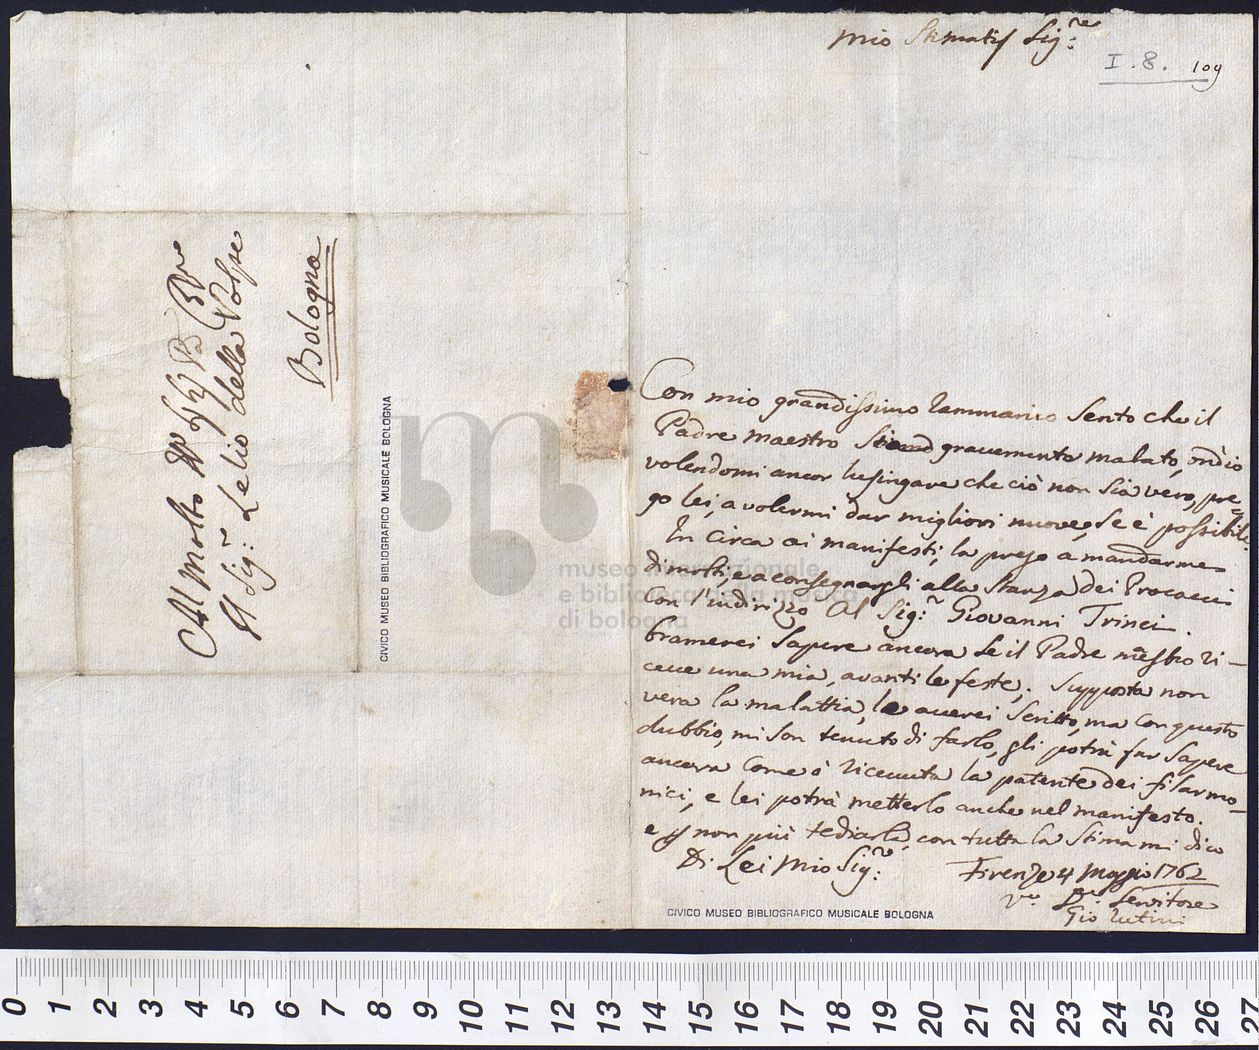 Mio Stimatis Sig:re
I.8. 109
Al Molto
Il Sig:r Lelio della Volpe
Bologna
CIVICO MUSEO BIBLIOGRAFICO MUSICALE BOLOGNA
museo internazionale
e biblioteca della musica
di bologna
Con mio grandissimo rammarico sento che il
Padre maestro gravemente malato, ond'io
volendomi ancor lusingare che ciò non sia vero, pre-
go lei, a volermi dar migliori nuove, se è possibile.
In circa ai manifesti, la prego a mandarme-
di molti, e a consegnargli alla stanza dei Procacci
con l'indirizzo Al Sig:r Giovanni Trinci.
bramerei sapere ancora se il Padre mestro ri-
ceve una mia, avanti le feste; supposta non
vera la malattia, le averei scritto, ma con questo
dubbio, mi son tenuto di farlo, gli potrà far sapere
ancora come ò ricevuta la patente dei filarmo-
nici, e lei potrà metterlo anche nel manifesto.
e non più tediarla, con tutta la stima mi dico
Di Lei Mio Sig:re Firenze 4 Maggio 1762
Servitore
Gio Rutini
CIVICO MUSEO BIBLIOGRAFICO MUSICALE BOLOGNA
0 1 2 3 4 5 6 7 8 9 10 11 12 13 14 15 16 17 18 19 20 21 22 23 24 25 26 27